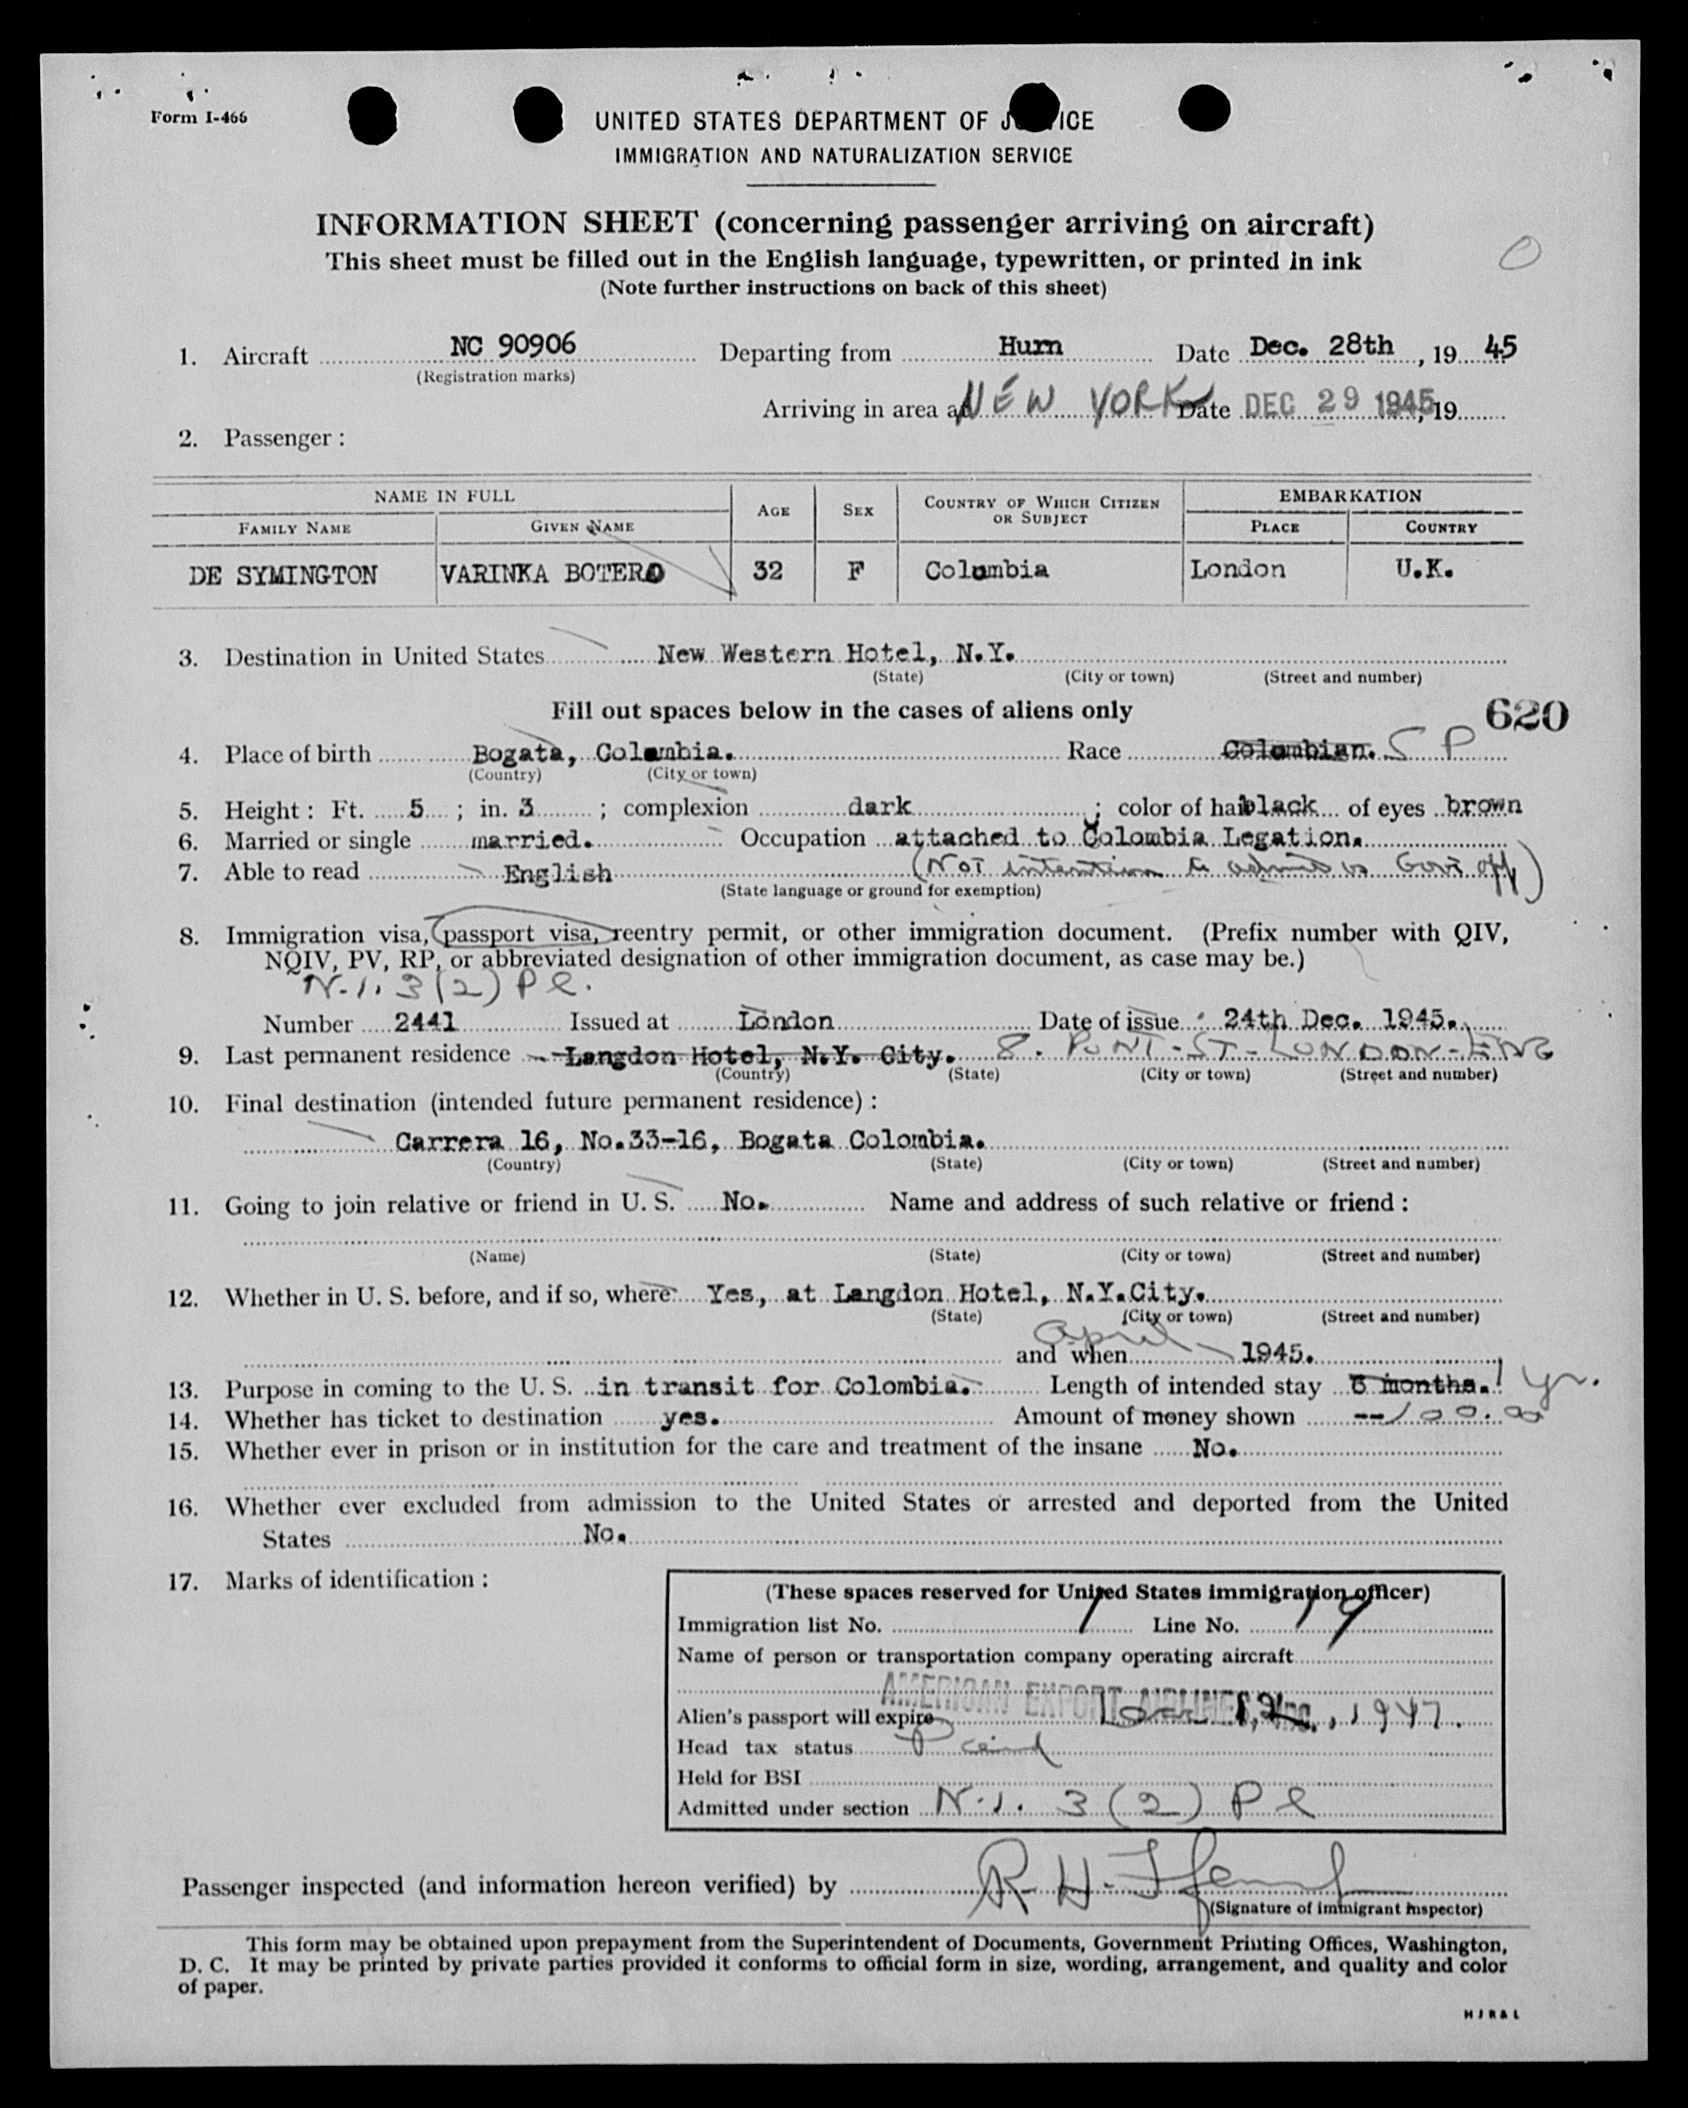 Form I-466
UNITED STATES DEPARTMENT OF JUSTICE
IMMIGRATION AND NATURALIZATION SERVICE
INFORMATION SHEET (concerning passenger arriving on aircraft)
This sheet must be filled out in the English language, typewritten, or printed in ink
(Note further instructions on back of this sheet)
1. Aircraft NC 90906 Departing from Hurn Date Dec. 28th, 19 45
(Registration marks)
Arriving in area at NEW YORK Date DEC 29 1945, 19
2. Passenger :
NAME IN FULL AGE SEX COUNTRY OF WHICH CITIZEN OR SUBJECT EMBARKATION
FAMILY NAME GIVEN NAME PLACE COUNTRY
DE SYMINGTON VARINKA BOTERO 32 F Colombia London U.K.
3. Destination in United States New Western Hotel, N.Y.
(State) (City or town) (Street and number)
Fill out spaces below in the cases of aliens only
620
4. Place of birth Bogata, Colombia. Race Colombian. S P
(Country) (City or town)
5. Height : Ft. 5 ; in. 3 ; complexion dark ; color of hair black of eyes brown
6. Married or single married. Occupation attached to Colombia Legation.
7. Able to read English (Not intention to admit as Govt off)
(State language or ground for exemption)
8. Immigration visa, passport visa, reentry permit, or other immigration document. (Prefix number with QIV,
NQIV, PV, RP, or abbreviated designation of other immigration document, as case may be.)
N.I. 3(2) Pl.
Number 2441 Issued at London Date of issue 24th Dec. 1945.
9. Last permanent residence Langdon Hotel, N.Y. City. 8. PONT-ST-LONDON-ENG
(Country) (State) (City or town) (Street and number)
10. Final destination (intended future permanent residence) :
Carrera 16, No.33-16, Bogata Colombia.
(Country) (State) (City or town) (Street and number)
11. Going to join relative or friend in U. S. No. Name and address of such relative or friend :
(Name) (State) (City or town) (Street and number)
12. Whether in U. S. before, and if so, where Yes, at Langdon Hotel, N.Y.City.
(State) (City or town) (Street and number)
and when April 1945.
13. Purpose in coming to the U. S. in transit for Colombia. Length of intended stay 6 months. 1 yr.
14. Whether has ticket to destination yes. Amount of money shown -- 100.00
15. Whether ever in prison or in institution for the care and treatment of the insane No.
16. Whether ever excluded from admission to the United States or arrested and deported from the United
States No.
17. Marks of identification :
(These spaces reserved for United States immigration officer)
Immigration list No. 1 Line No. 19
Name of person or transportation company operating aircraft
AMERICAN EXPORT AIRLINES, INC.
Alien's passport will expire Dec 12, 1947.
Head tax status Paid
Held for BSI
Admitted under section N.I. 3(2) Pl
Passenger inspected (and information hereon verified) by R H
(Signature of immigrant inspector)
This form may be obtained upon prepayment from the Superintendent of Documents, Government Printing Offices, Washington,
D. C. It may be printed by private parties provided it conforms to official form in size, wording, arrangement, and quality and color
of paper.
HJR&L